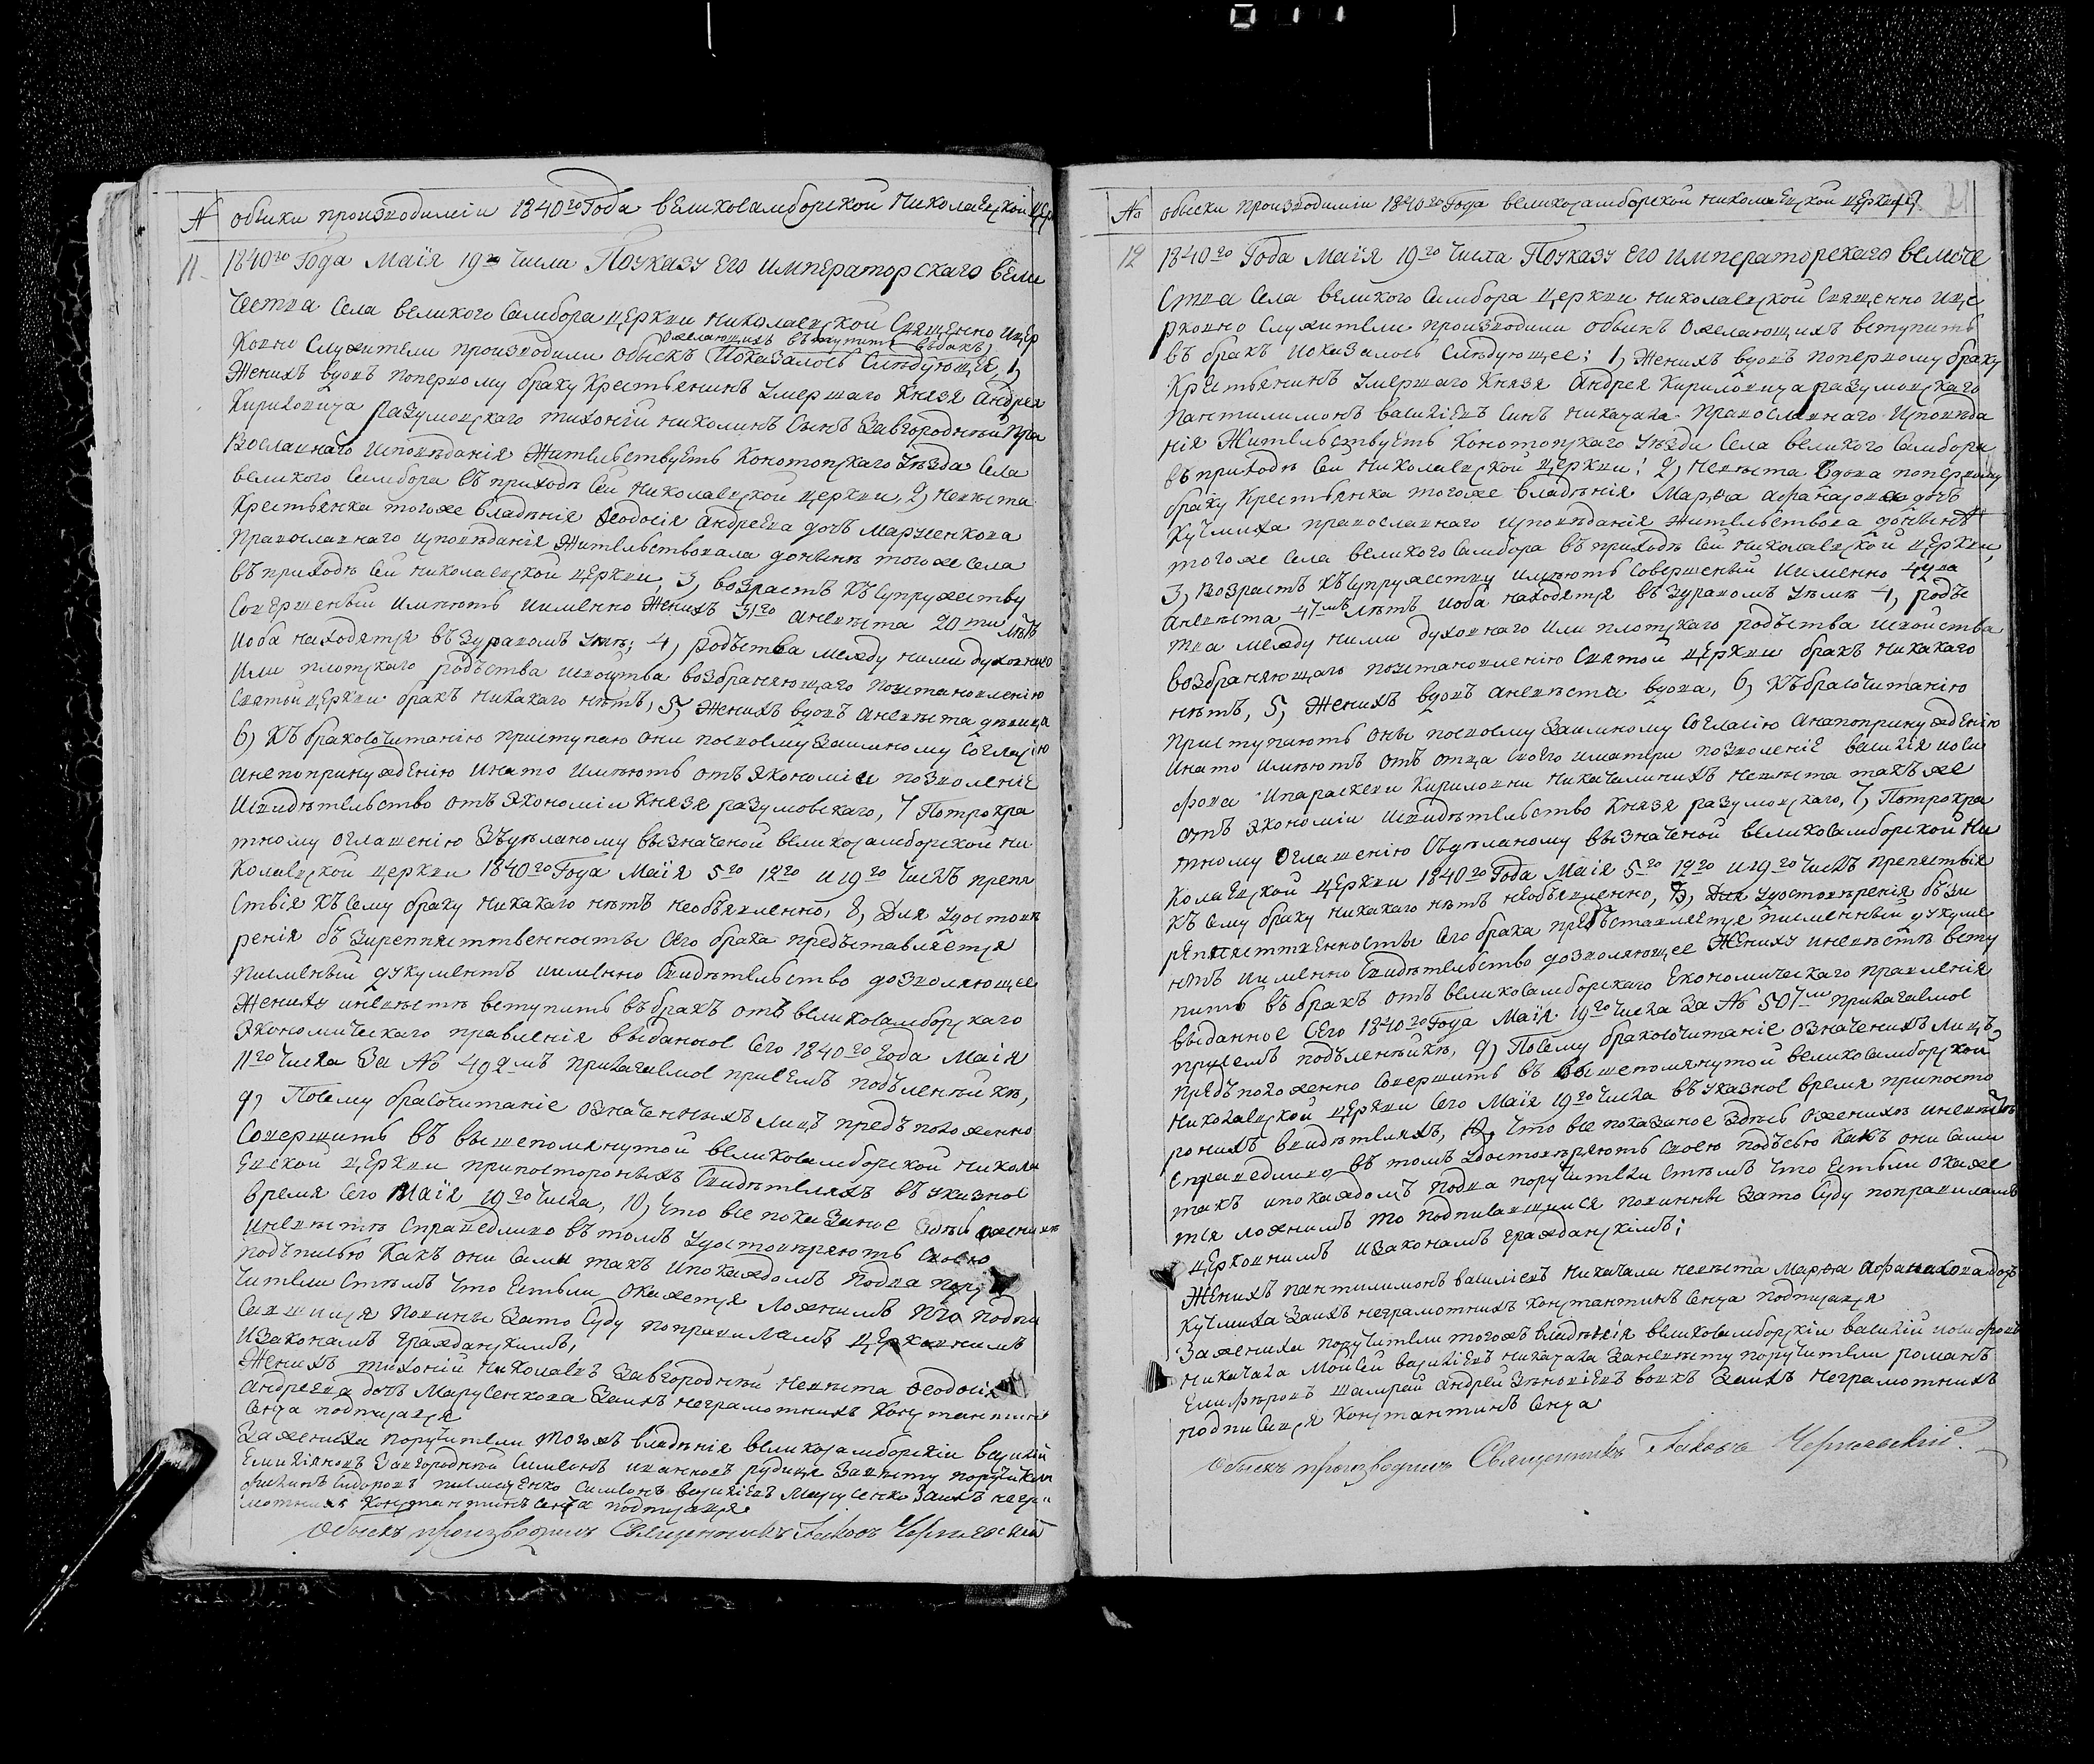 № обыски произходиміи 1840го Года великосамборской Николаевской цер
11. 1840го Года Маія 19го числа По указу его императорскаго вели
чества Села великого Самбора церкви николаевской Священно ицер
желающихъ вступить въ бракъ,
ковно Служители произходили обыскъ Иоказалось Слѣдующее, 1,
Женихъ вдовъ поперному браку Крестьянинъ умершаго Князя Андрея
Кириловича разумовскаго тихонгій николинъ Сынъ Завгородный пра
вославнаго исповѣданія Жительствуетъ Конотопскаго уѣзда Села
великого Самбора въ приходѣ Сей николаевской церкви, 2, Невѣста
Крестьянка того же владѣнія Ѳеодосія Андреева дочь Марусенкова
православнаго исповѣданія Жительствовала донынѣ того же села
въ приходѣ Сей николаевской церкви, 3, возрастъ къ Супружеству
Совершеный имѣютъ иименно Женихъ 31го аневѣста 20ти лѣтъ
иоба находятся въ здравомъ умѣ; 4, родъства между ними духовнаго
или плотскаго родъства исвойства возбраняющаго по установленію
Святой церкви бракъ никакаго нѣтъ, 5, Женихъ вдовъ аневѣста дѣвица
6, къ бракосочитанію приступаю они по своему взаимному Согласію
анепопринужденію инато имѣютъ отъ Экономіи позволеніе
Исвидѣтельство отъ Экономіи Князя разумовскаго, 7 По трокра
тному оглашенію Здѣланому въ значеной великосамборской ни
колаевской церкви 1840го Года Маія 5го 12го и 19го числъ препя
ствія къ сему браку никакаго нѣтъ необъявленно, 8, Для удостовѣ
ренія бъзпрепятственности Сего брака предъставляется
писменый документъ иименно Свидѣтельство дозволяющее
Жениху иневѣстѣ вступить въ бракъ отъ великосамборскаго
Экономическаго правленія выданное Сего 1840го Года Маія
11го числа За № 492мъ прилагаемое присемъ подъленникѣ,
9, По сему брасочитаніе означенныхъ лицъ предъположенно
Совершить въ вышепомянутой великосамборской никола
евской церкви припостороныхъ Свидѣтеляхъ въ указное
время Сего Маія 19го числа, 10, что все показаное здѣсь оженихѣ
иневѣстѣ справедливо въ томъ удостовѣряютъ своею
подъписью какъ они Сами такъ ипокаждомъ по два пору
чители Стѣмъ что Естьли окажется ложнымъ то подпи
савшиися повинны зато Суду по правиламъ церковнымъ
изаконамъ гражданскимъ,
Женихъ тихоній николаевъ Завгородный невѣста Ѳеодосія
андреева дочь Марусенкова Заихъ неграмотнихъ Константинъ
Сенча подписался
За жениха поручители того жъ владѣнія великосамборскіи василій
Емиліяновъ Завгородный Симеонъ ивановъ рудица За невѣсту поручители
Сидоровъ писмененко Симеонъ василіевъ Марусенко Заихъ негра
мотнихъ Константинъ Сенча подписался
Обыскъ производилъ Священникъ Іаковъ Чернявскій
№ обыски произходиміи 1840го Года великосамборской николаевской церкви
12 1840го Года Маія 19го числа По указу Его императорскаго величе
ства Села великого Самбора церкви николаевской Священно ице
рковно Служители произходили обыскъ ожелающихъ вступить
въ бракъ иоказалось слѣдующее; 1, Женихъ вдовъ поперному браку
Крестьянинъ умершаго Князя Андрея Кириловича разумовскаго
Пантилимонъ василіевъ Синъ никачала православнаго исповѣда
нія Жительствуетъ Конотопскаго уѣзди Села великого Самбора
въ приходѣ Сей николаевской церкви; 2, невѣста вдова поперному
браку Крестьянка того же владѣнія Марѳа афанасова дочь
Кучмиха православнаго исповѣданія жительствова донынѣ
того же села великого Самбора въ приходѣ Сей николаевской церкви,
3, возрастъ къ Супружеству имѣютъ Совершеный иименно
аневѣста 47мъ лѣтъ иоба находятся въ здравомъ умѣ 4, родъс
тва между ними духовнаго или плотскаго родъства исвойства
возбраняющаго по установленію Святой церкви бракъ никакаго
нѣтъ, 5, Женихъ вдовъ аневѣста вдова, 6, къ брасочитанію
приступаютъ оны по своему взаимному Согласію анепопринужденію
инато имѣютъ отъ отца своего иматери позволеніе василія иоси
фова ипараскеви Кириловни никачалинихъ невѣста такъ же
отъ Экономіи исвидѣтельство Князя разумовскаго, 7, По трокра
тному Оглашенію Съдѣланому въ значеной великосамборской ни
колаевской церкви 1840го Года Маія 5го 12го и 19го числъ препятствія
къ сему браку никакаго нѣтъ необъявленно, 8, Для удостовѣренія бъзп
репятственности Сего брака предъставляется писменный докуме
нтъ иименно Свидѣтельство дозволяющее Жениху иневѣстѣ всту
пить въ бракъ отъ великосамборскаго Економическаго правленія
выданное Сего 1840го Года Маія 19го числа За № 507м прилагаемое
присемъ подъленникѣ, 9, По сему брасочитаніе означенихъ лицъ
предъположенно Совершить въ вышепомянутой великосамборской
николаевской церкви Сего Маія 19го числа въ указное время припосто
ронихъ свидѣтеляхъ, 10, что все показаное здѣсь оженихѣ иневѣстѣ
справедливо въ томъ удостовѣряютъ своею подъсью какъ они Сами
такъ ипокаждомъ по два поручители Стѣмъ что Естьли окаже
тся ложнимъ то подписавшиися повинны зато Суду по правиламъ
церковнимъ изаконамъ гражданскимъ;
Женихъ пантилимонъ василіевъ никачала невѣста Марѳа афанасова дочь
Кучмиха Заихъ неграмотнихъ Константинъ Сенча подписался
За жениха поручители того жъ владѣнія великосамборскіи василій иосифовъ
никачала Моисей василіевъ никачала Заневѣсту поручители романъ
Елифѣровъ шамрай андрей Зѣновіевъ вовкъ Заихъ неграмотнихъ
подписался Константинъ Сенча
Обыскъ производилъ Священникъ Іаковъ Чернявскій.